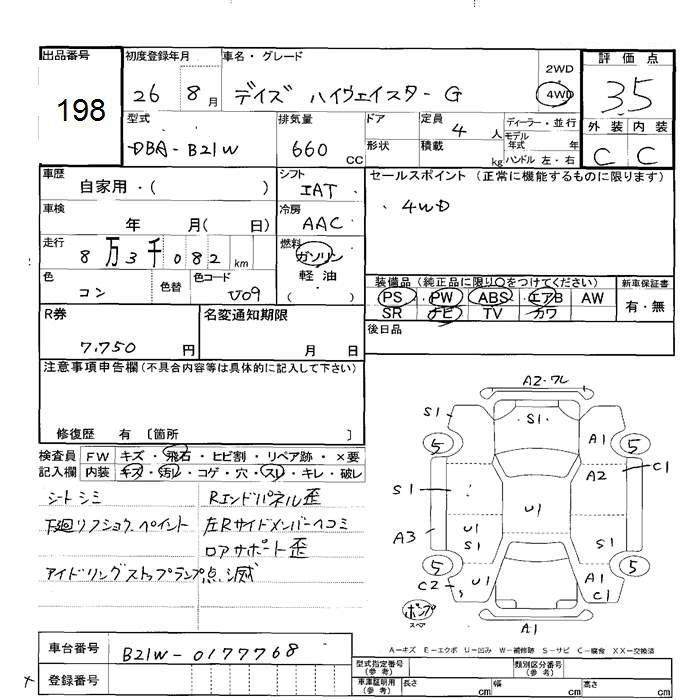 出品番号 初度登録年月 車名・グレード 評価点
198 26 8月 デイズ ハイウェイスターG 2WD 4WD 3.5
型式 排気量 ドア 定員 4 人 ディーラー・並行 外装 内装
DBA-B21W 660 CC 形状 積載 kg モデル年式 年 ハンドル 左・右 C C
車歴 自家用・( ) シフト IAT セールスポイント (正常に機能するものに限ります)
車検 年 月( 日) 冷房 AAC ・4WD
走行 8万3千082km 燃料 ガソリン
色 コン 色替 色コード V09 軽油 ( )
装備品 (純正品に限り○をつけてください) 新車保証書
PS ・ PW ABS エアB AW 有・無
SR ナビ TV カワ
R券 7,750 円 名変通知期限 月 日 後日品
注意事項申告欄(不具合内容等は具体的に記入して下さい)
修復歴 有 〔箇所 〕
検査員 FW キズ・飛石・ヒビ割・リペア跡・×要
記入欄 内装 キズ・汚れ・コゲ・穴・スレ・キレ・破レ
シートシミ Rエンドパネル歪
下廻リフショウ、ペイント 左Rサイドメンバーヘコミ
ロアサポート歪
アイドリングストップランプ点滅
A2.ワレ
S1 S1
5 A1 5
A2 C1
S1 U1
A3 U1 S1 S1
5 5
C2 U1 A1 C1
ポンプ スペア
A1
A-キズ E-エクボ U-凹み W-補修跡 S-サビ C-腐食 XX-交換済
車台番号 B21W-0177768
登録番号
型式指定番号(参考) 類別区分番号(参考)
車庫証明用(参考) 長さ cm 幅 cm 高さ cm